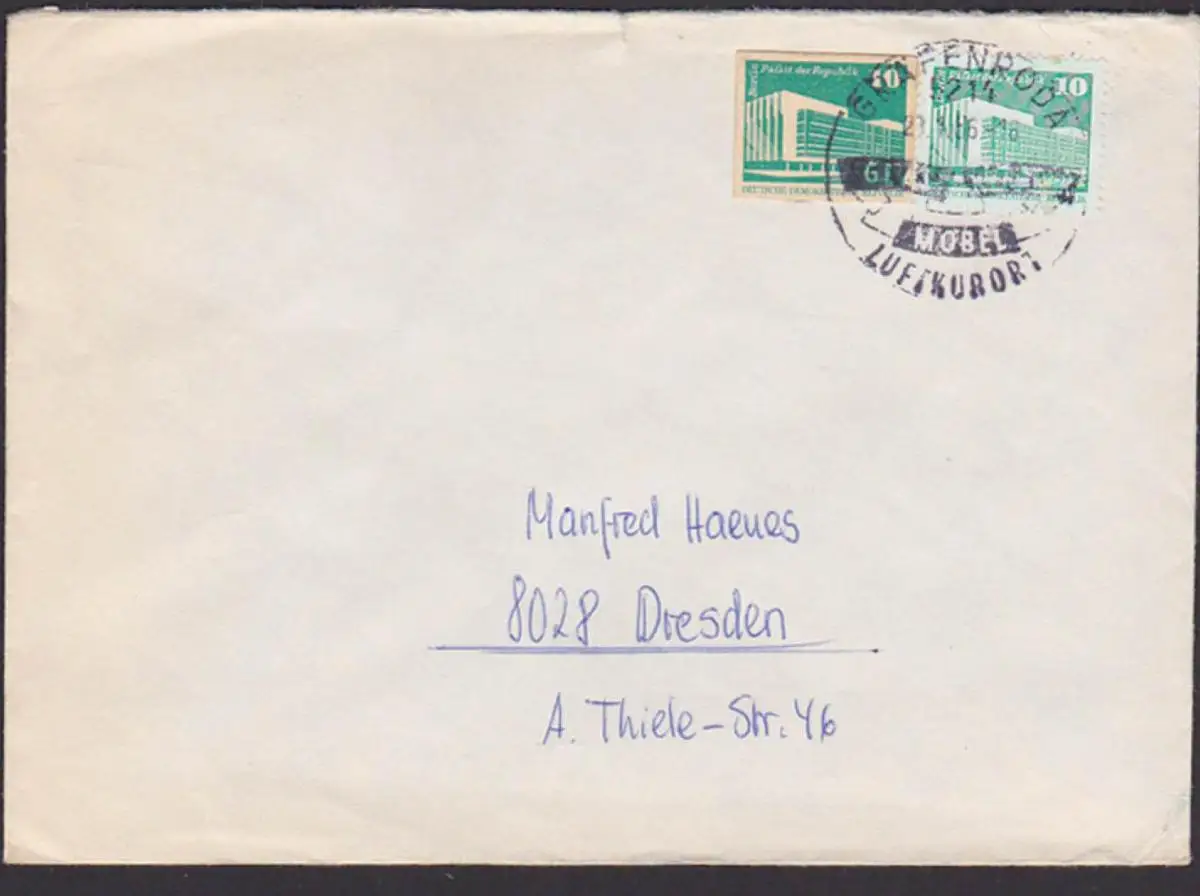 Berlin Palast der Republik 10
DEUTSCHE DEMOKRATISCHE REPUBLIK
10
GRÄFENRODA
5214
MÖBEL
LUFTKURORT
Manfred Haenes
8028 Dresden
A. Thiele-Str. 46